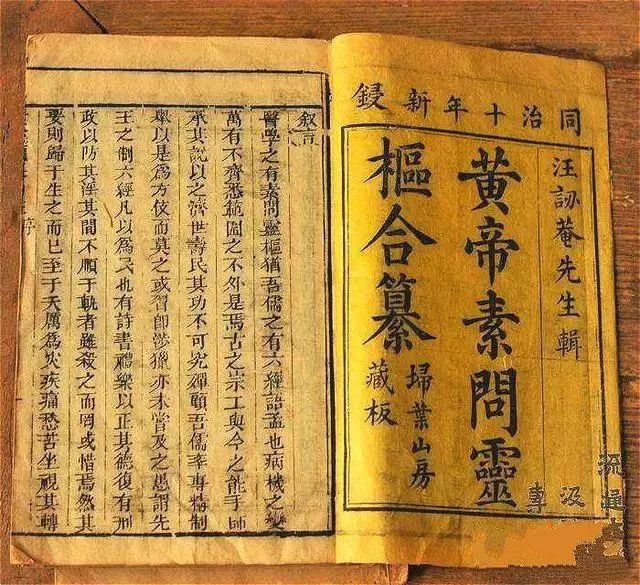 同治十年新鋟
汪訒菴先生輯
黄帝素問靈
樞合纂
掃葉山房
藏板
叙言
醫學之有素問靈樞猶吾儒之有六經語孟也病機之變
萬有不齊悉範圍之不外是焉古之宗工與今之能手師
承其說以之濟世壽民其功不可究殫顧吾儒率專精制
舉以是爲方伎而莫之或習即涉獵亦未嘗及之愚謂先
王之制六經凡以爲民也有詩書禮樂以正其德復有刑
政以防其淫其間不順于軌者雖殺之而罔或惜焉然其
要則歸于生之而已至于夭厲爲災疾痛愁苦坐視其轉